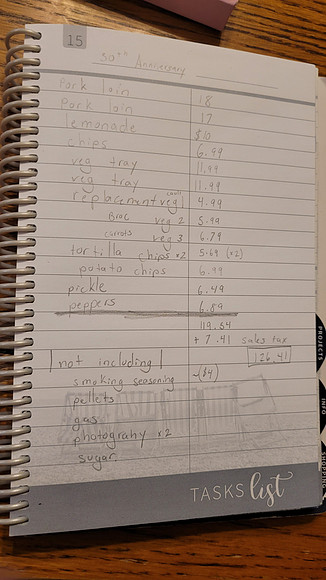 15
50th Anniversary
Pork loin 18
Pork loin 17
lemonade $10
chips 6.99
veg tray 11.99
veg tray 11.99
replacement veg 1 4.99
Broc veg 2 5.99
carrots veg 3 6.79
tortilla chips x2 5.69 (x2)
potato chips 6.99
pickle 6.49
peppers 6.89
119.54
+ 7.41 sales tax
not including 126.41
smoking seasoning ~($4)
pellets
gas
photography x2
sugar
TASKS list
PROJECTS
INFO
SHOPPING